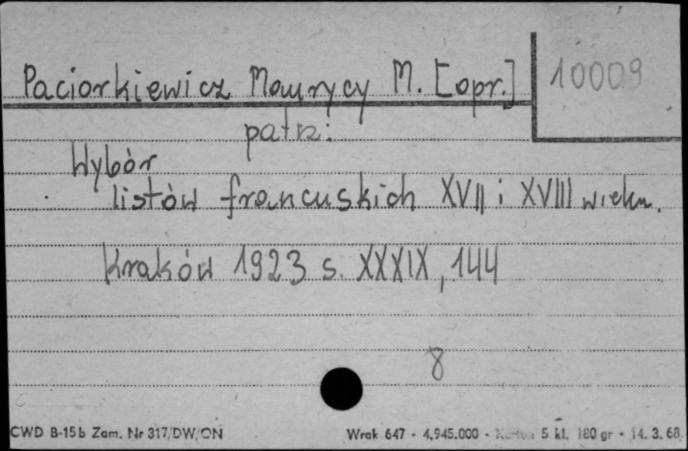 Paciorkiewicz Maurycy M. [opr.] 10009
patrz:
Wybór
listów francuskich XVII i XVIII wieku.
Kraków 1923 s. XXXIX, 144
8
CWD B-15b Zam. Nr 317/DW/ON Wrak 647 - 4.945.000 - 5 kl. 180 gr - 14. 3. 68